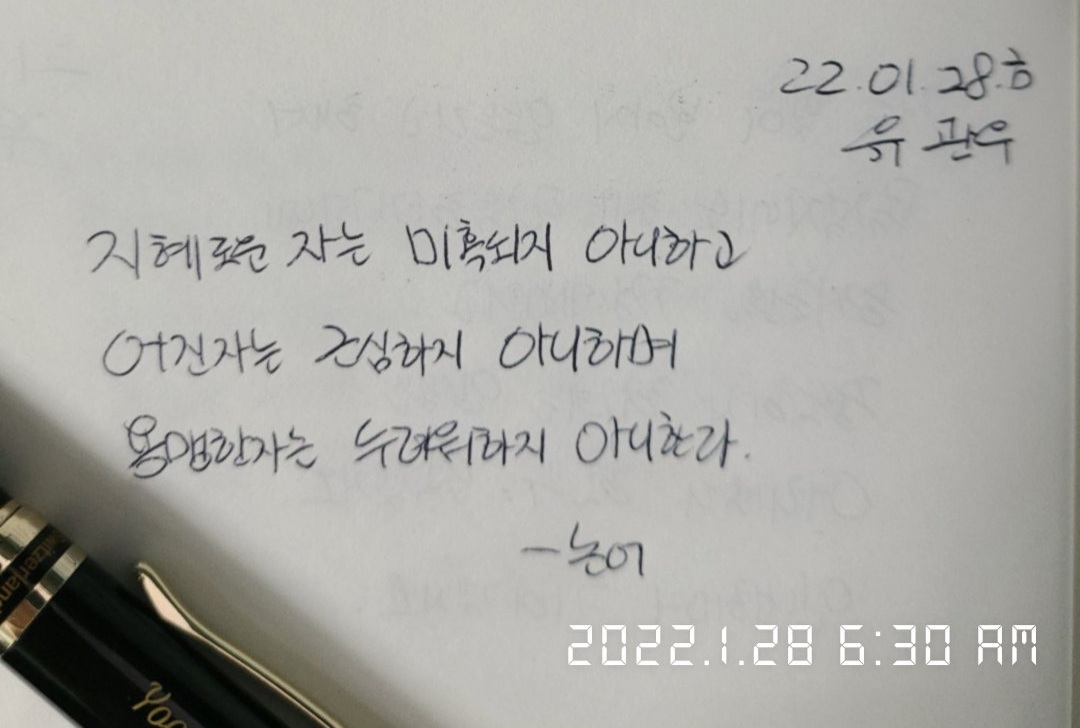 22.01.28.금
유관우
지혜로운 자는 미혹되지 아니하고
어진자는 근심하지 아니하며
용맹한자는 두려워하지 아니한다.
- 논어
witzerland
2022.1.28 6:30 AM
Yoo